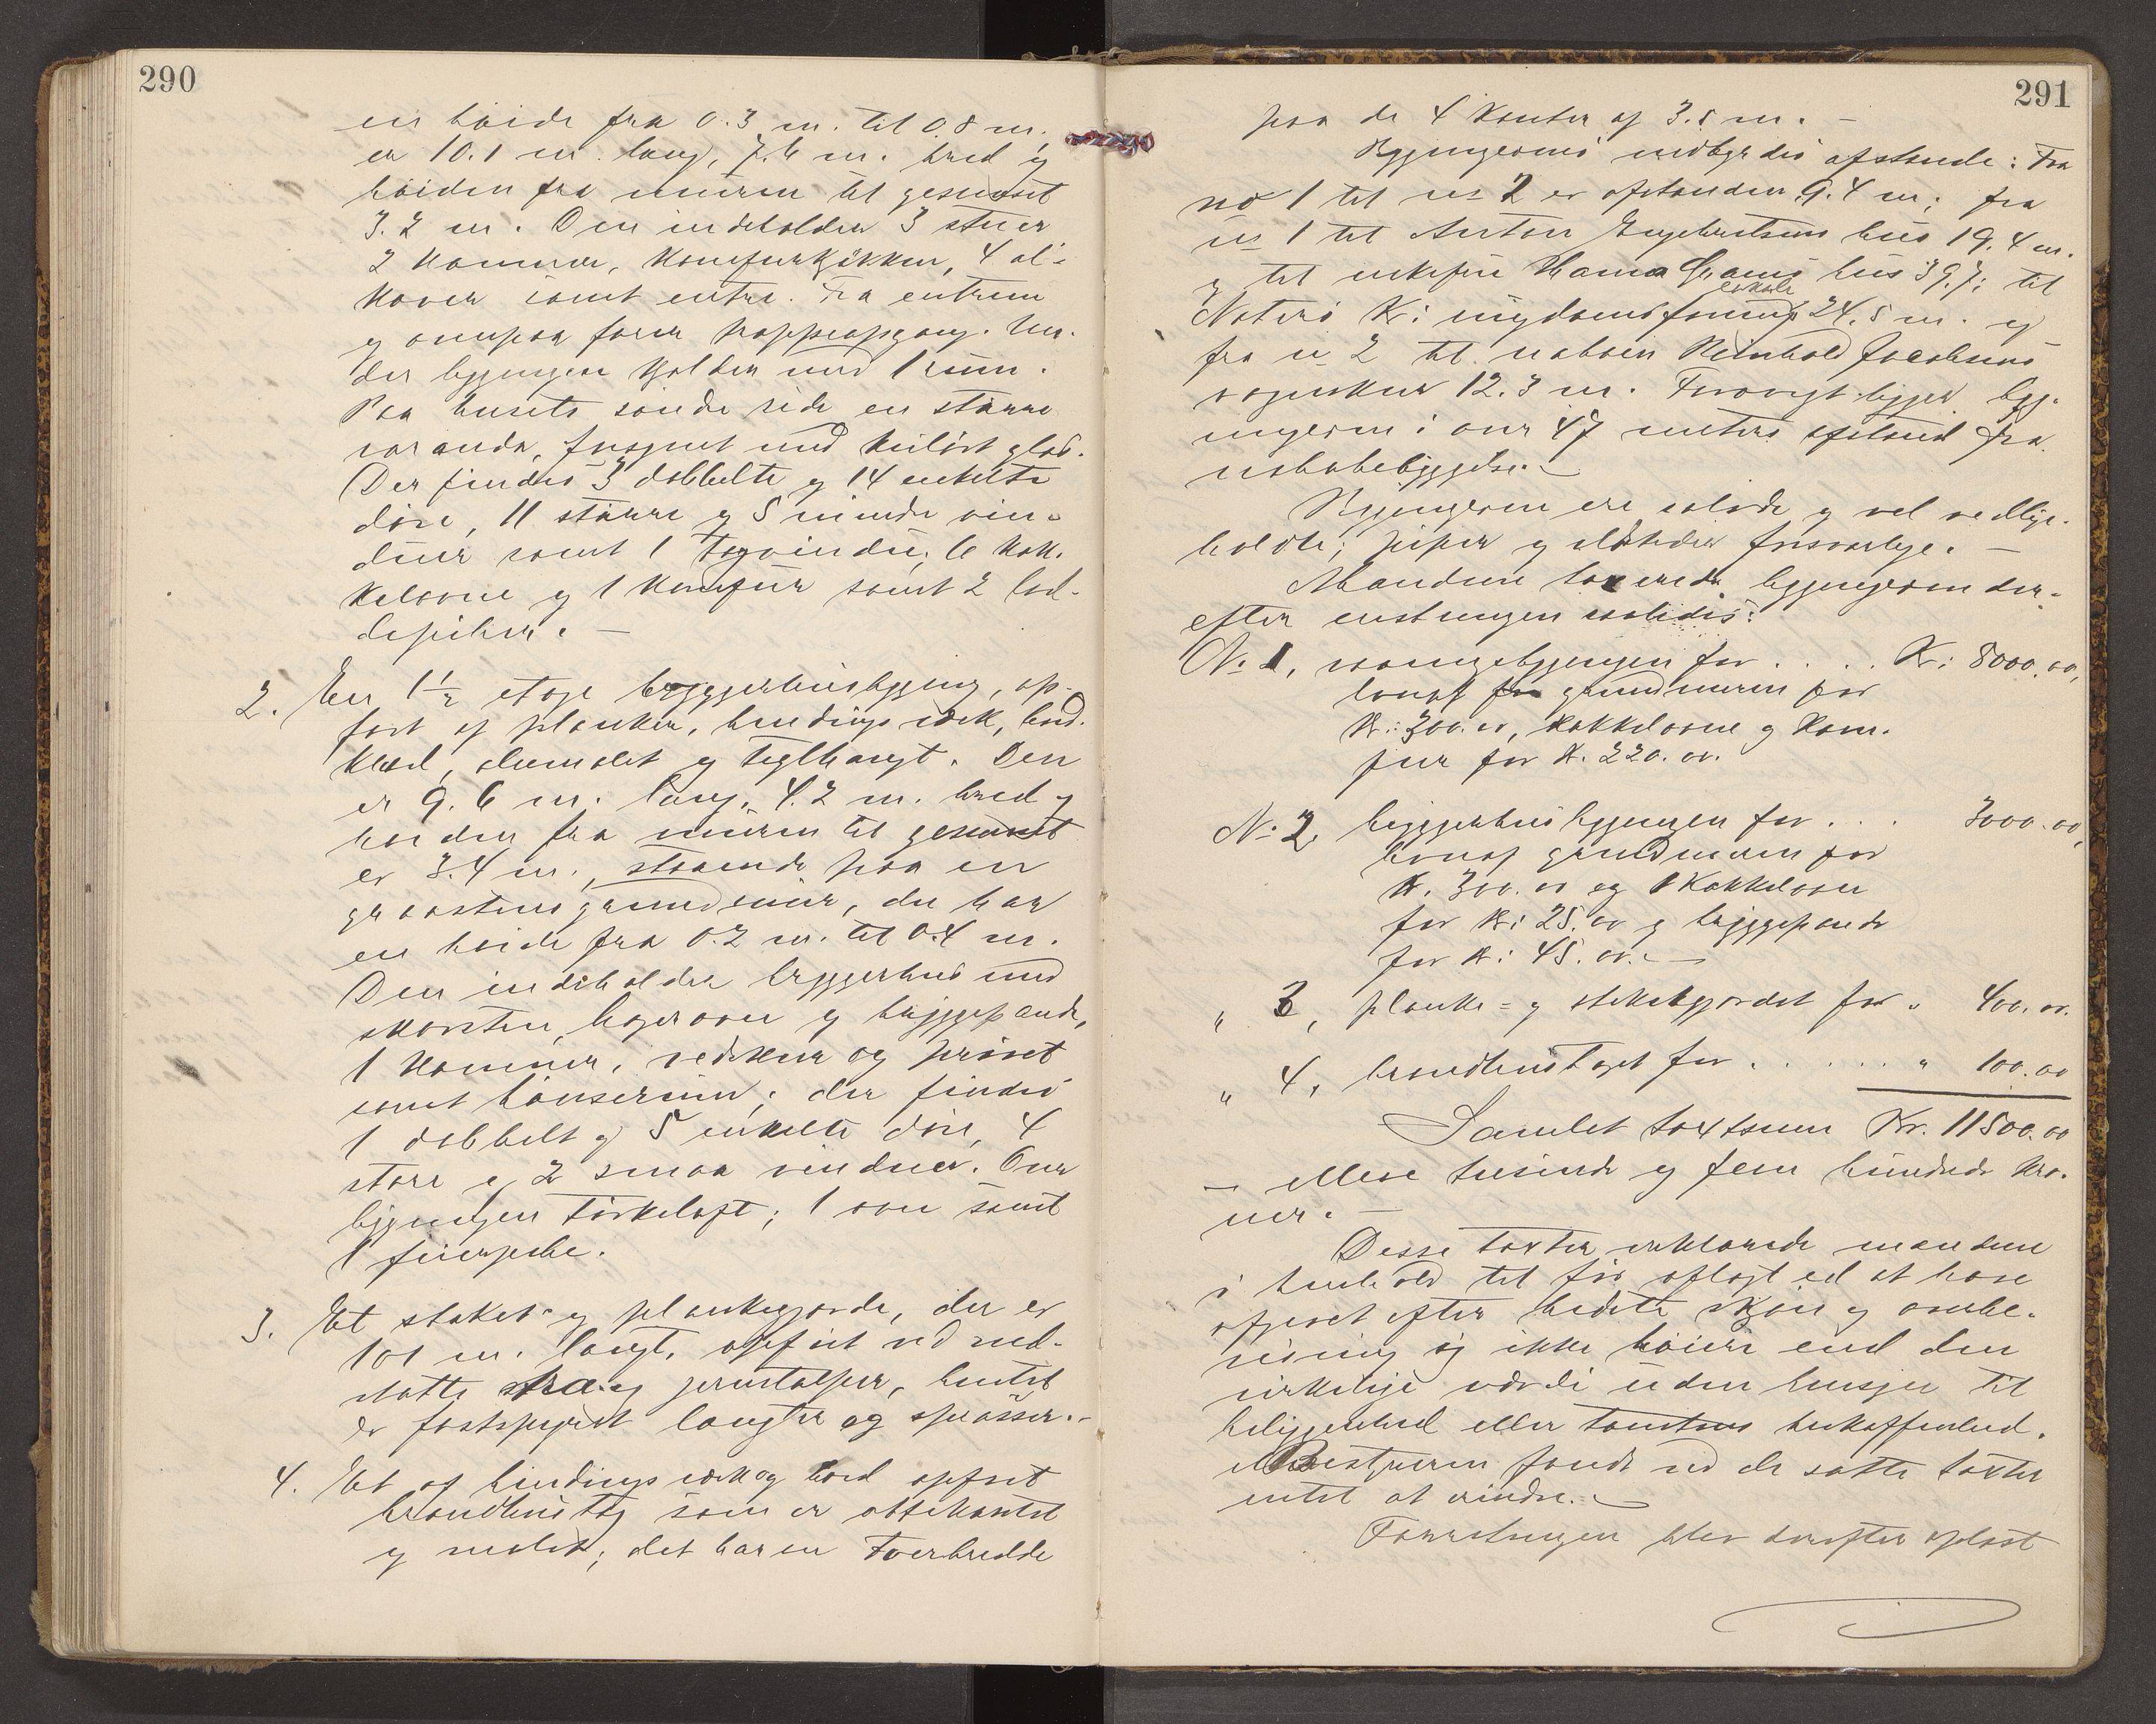 290
en høide fra 0.3 m. til 0.8 m.
er 10.1 m. lang, 7.6 m. bred og
høiden fra muren til gesimset
3.2 m. Den indeholder 3 stuer
2 kammer, komfurkjøkken, 4 al-
kover samt entre. Fra entreen
og ovenpaa fører trappeopgang. Un-
der bygningen kjelder med 1 rum.
Paa husets søndre side en større
veranda, forsynet med kulørt glas.
Der findes 3 dobbelte og 14 enkelte
døre, 11 større og 5 mindre vin-
duer samt 1 tagvindu, 6 kak-
kelovne og 1 komfur samt 2 lod-
depiber. —
2. En 1 1/2 etage bryggerhusbygning, op-
ført af planker, bindingsverk, bord-
klæd, oliemalet og teglhængt. Den
er 9.6 m. lang, 4.2 m. bred og
høiden fra muren til gesimset
er 3.4 m., staaende paa en
graastens grundmur, der har
en høide fra 0.2 m. til 0.4 m.
Den indeholder bryggerhus med
skorsten, bagerovn og bryggepande,
1 kammer, vedskur og privet
samt hønserum; der findes
1 dobbelt og 5 enkelte døre, 4
store og 2 smaa vinduer. Over
bygningen tørkeloft; 1 ovn samt
1 feierpibe.
3. Et staket og plankegjærde, der er
101 m. langt, opført ved ned-
satte træ og jernstolper, hvortil
er fastspigret langter og sprosser. -
4. Et af bindingsverk og bord opført
brøndhustag som er ottekantet
og malet; det har en tverbredde
291
paa de 4 kanter af 3.5 m. -
Bygningernes indbyrdes afstande: Fra
no 1 til no 2 er afstanden 9.4 m; fra
no 1 til Anton Engebretsens hus 19.4 m.
og til enkefru Hanna hus 39.7; til
Nøterø 24.5 m. og
lokale
fra no 2 til naboen Reinhold Jacobsens
vognskur 12.3 m. Forøvrigt ligger byg-
ningerne i over 47 meters afstand fra
nabobebyggelse. —
Bygningerne ere solide og vel vedlige-
holdte; piper og ildsteder forsvarlige. —
Mændene taxerede bygningerne der-
efter enstemmigen saaledes:
No 1, vaaningsbygningen for . . . . Kr: 8000.00,
hvoraf for grundmuren for
Kr: 300.00, kakkelovne og kom-
fur for K. 220.00.
No 2, bryggerhusbygningen for . . . 3000.00,
hvoraf grundmuren for
Kr. 300.00 og 1 kakkelovn
for Kr: 25.00 og bryggepande
for Kr: 45.00. —
" 3, planke- og staketgjerdet for " 400.00.
" 4, brøndhustaget for . . . . . . " 100.00
Samlet taxtsum Kr. 11500.00
— elleve tusinde og fem hundrede kro-
ner. —
Desse taxter erklærede mændene
i henhold til før aflagt ed at have
afgivet efter bedste skjøn og overbe-
visning og ikke høiere end den
virkelige værdi uden hensyn til
beliggenhed eller tomtens beskaffenhed.
Bestyreren fandt ved de satte taxter
intet at erindre. —
Forretningen blev derefter oplæst